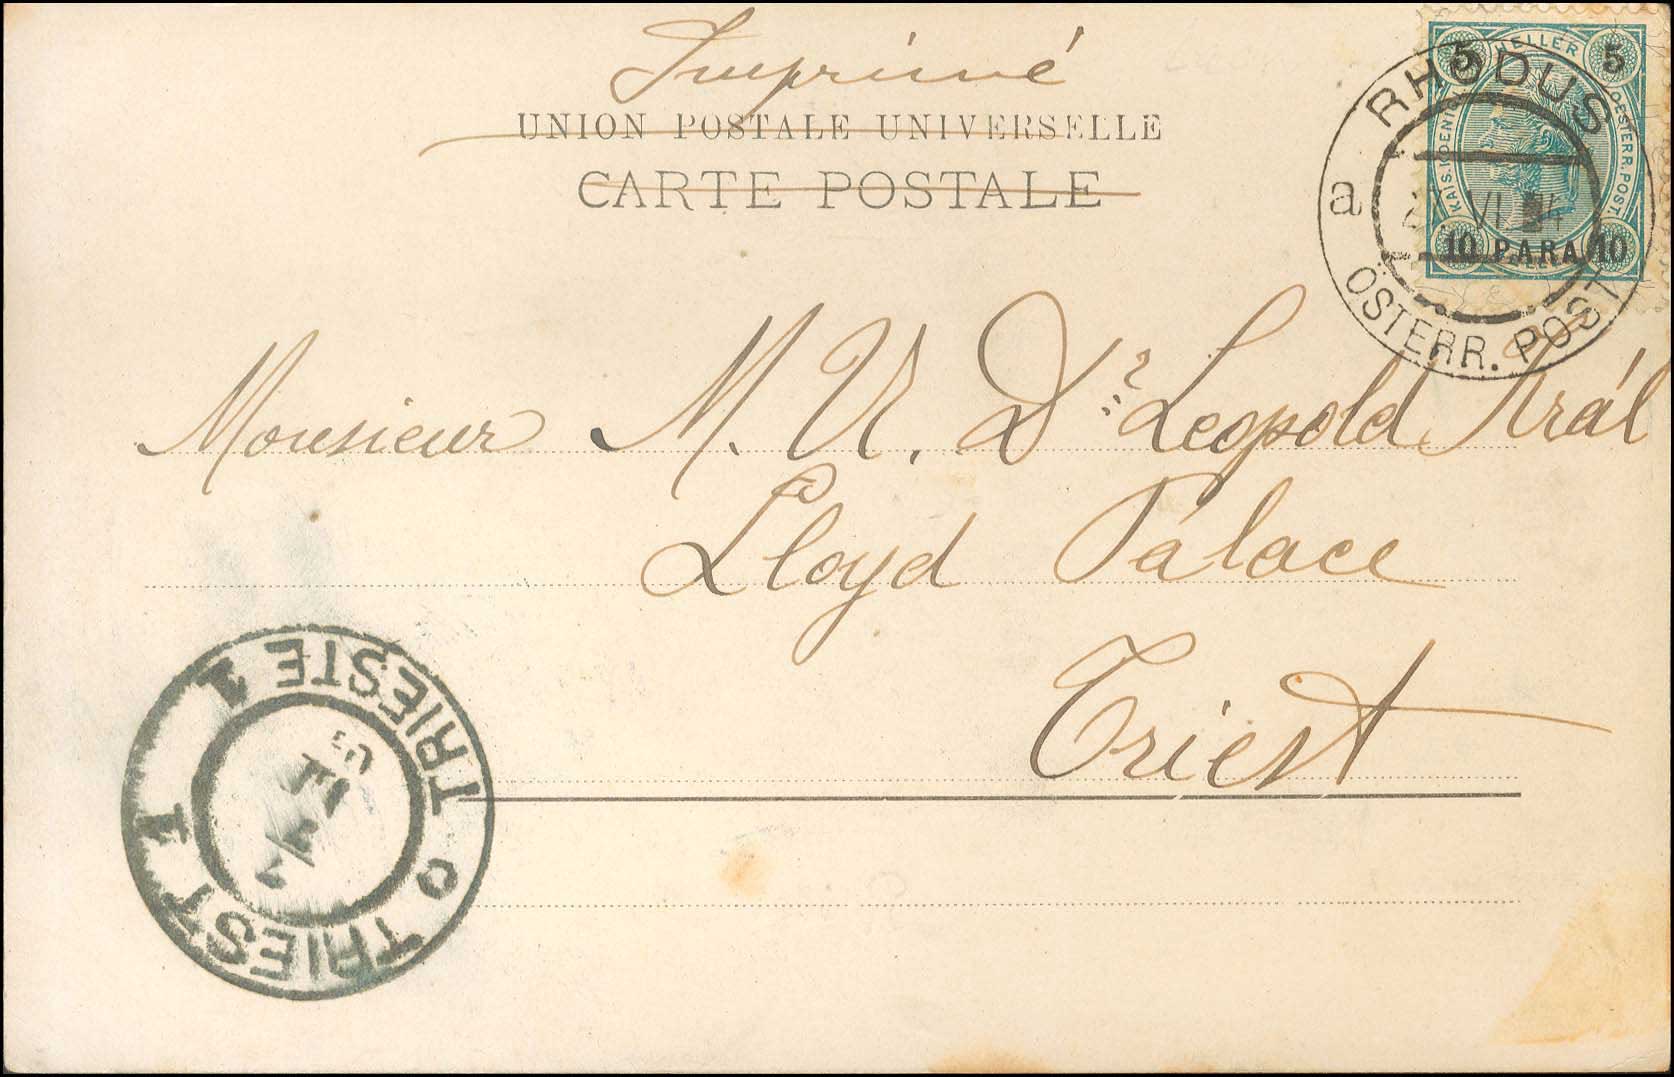 Imprimé
UNION POSTALE UNIVERSELLE
CARTE POSTALE
5 HELLER 5
KAIS. KOENIGL. OESTERR. POST.
10 PARA 10
RHODUS
a
VI
ÖSTERR. POST
Monsieur M. U. Dr. Leopold Král
Lloyd Palace
Triest
TRIESTE 1
TRIEST 1